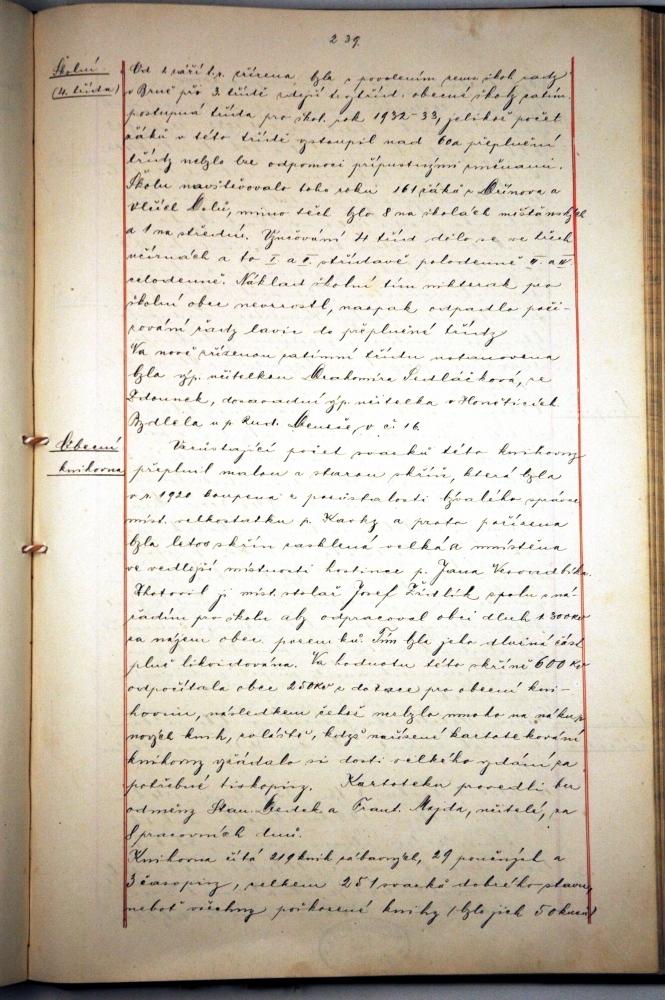 239.
Školní
(4. třída)
Od 1. září t. r. zřízena byla s povolením zems. škol. rady
v Brně při 3. třídě zdejší obecné školy zatím.
postupná třída pro škol. rok 1932-33, jelikož počet
žáků v této třídě vstoupil nad 60 a přeplnění
třídy nebylo lze odpomoci přípustnými změnami.
Školu navštěvovalo toho roku 161 žáků z Dřínova a
Vlčích Dolů, mimo těch bylo 8 na školách měšťanských
a 1 na střední. Vyučování 4 tříd dělo se ve třech
učírnách a to I. a II. střídavě polodenně a IV.
celodenně. Náklad školní tím nikterak pro
školní obec nevzrostl, naopak odpadlo poři-
zování řady lavic do přeplněné třídy.
Na nově zřízenou zatímní třídu ustanovena
byla výp. učitelkou Drahomíra Sedláčková, ze
Zdounek, dosavadní výp. učitelka v Honěticích.
Bydlela u p. Rud. v č. 16.
Obecní
knihovna
Vzrůstající počet svazků této knihovny
přeplnil malou a starou skříň, která byla
v r. 1920 koupena z pozůstalosti bývalého správce
míst. velkostatku p. Kavky a proto pořízena
byla letos skříň zasklená velká a umístěna
ve vedlejší místnosti hostince p. Jana
Zhotovil ji míst. stolař Josef spolu s ná-
řadím pro školu aby odpracoval obci dluh 1.300 Kč
za nájem obec. pozemků. Tím byla jeho dlužná část
plně likvidována. Na hodnotu této skříně 600 Kč
odpočítala obec 250 Kč z dotace pro obecní kni-
hovnu, následkem čehož nezbylo mnoho na nákup
nových knih, zvláště, když nařízení kartotekování
knihovny vyžádalo si dosti velkého vydání za
potřebné tiskopisy. Kartoteku provedli bez
odměny Stan. a Frant. Majda, učitelé, za
8 pracovních dnů.
Knihovna čítá 219 knih zábavných, 29 poučných a
3 časopisy, celkem 251 svazků dobrého stavu,
neboť všechny poškozené knihy (bylo jich 50 kusů)